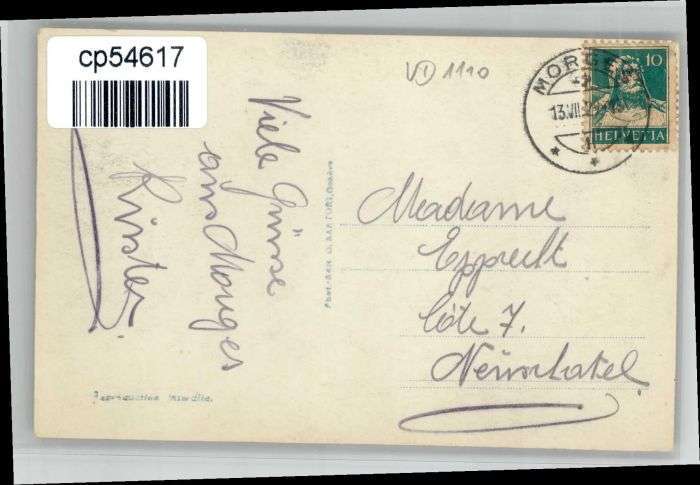 cp54617
VD 1110
MORGES
13.VII.
10
HELVETIA
Viele Grüsse
aus Morges
Madame
Epprecht
Côte 7.
Neuchatel
Reproduction interdite.